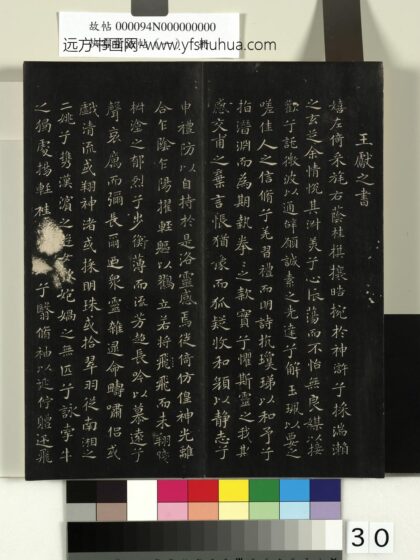 故帖 000094N000000000
远方书画网--www.yfshuhua.com
王獻之書
嬉左倚采旄右蔭桂旗攘皓捥於神滸兮採湍瀨
之玄芝余情悅其淑美兮心振蕩而不怡無良媒以接
歡兮託微波以通辭願誠素之先達兮解玉珮以要之
嗟佳人之信脩兮羌習禮而明詩抗瓊珶以和予兮
指潛淵而為期執拳拳之款實兮懼斯靈之我欺
感交甫之棄言悵猶豫而狐疑收和顏以靜志兮
申禮防以自持於是洛靈感焉徙倚仿偟神光離
合乍陰乍陽擢輕軀以鶴立若將飛而未翔踐
椒塗之郁烈兮步衡薄而流芳超長吟以慕遠兮
聲哀厲而彌長爾迺眾靈雜遝命疇嘯侶或
戲清流或翔神渚或採明珠或拾翠羽從南湘之
二姚兮攜漢濱之遊女歎匏媧之無匹兮詠牽牛
之獨處揚輕袿兮翳脩袖以延佇體迅飛
30